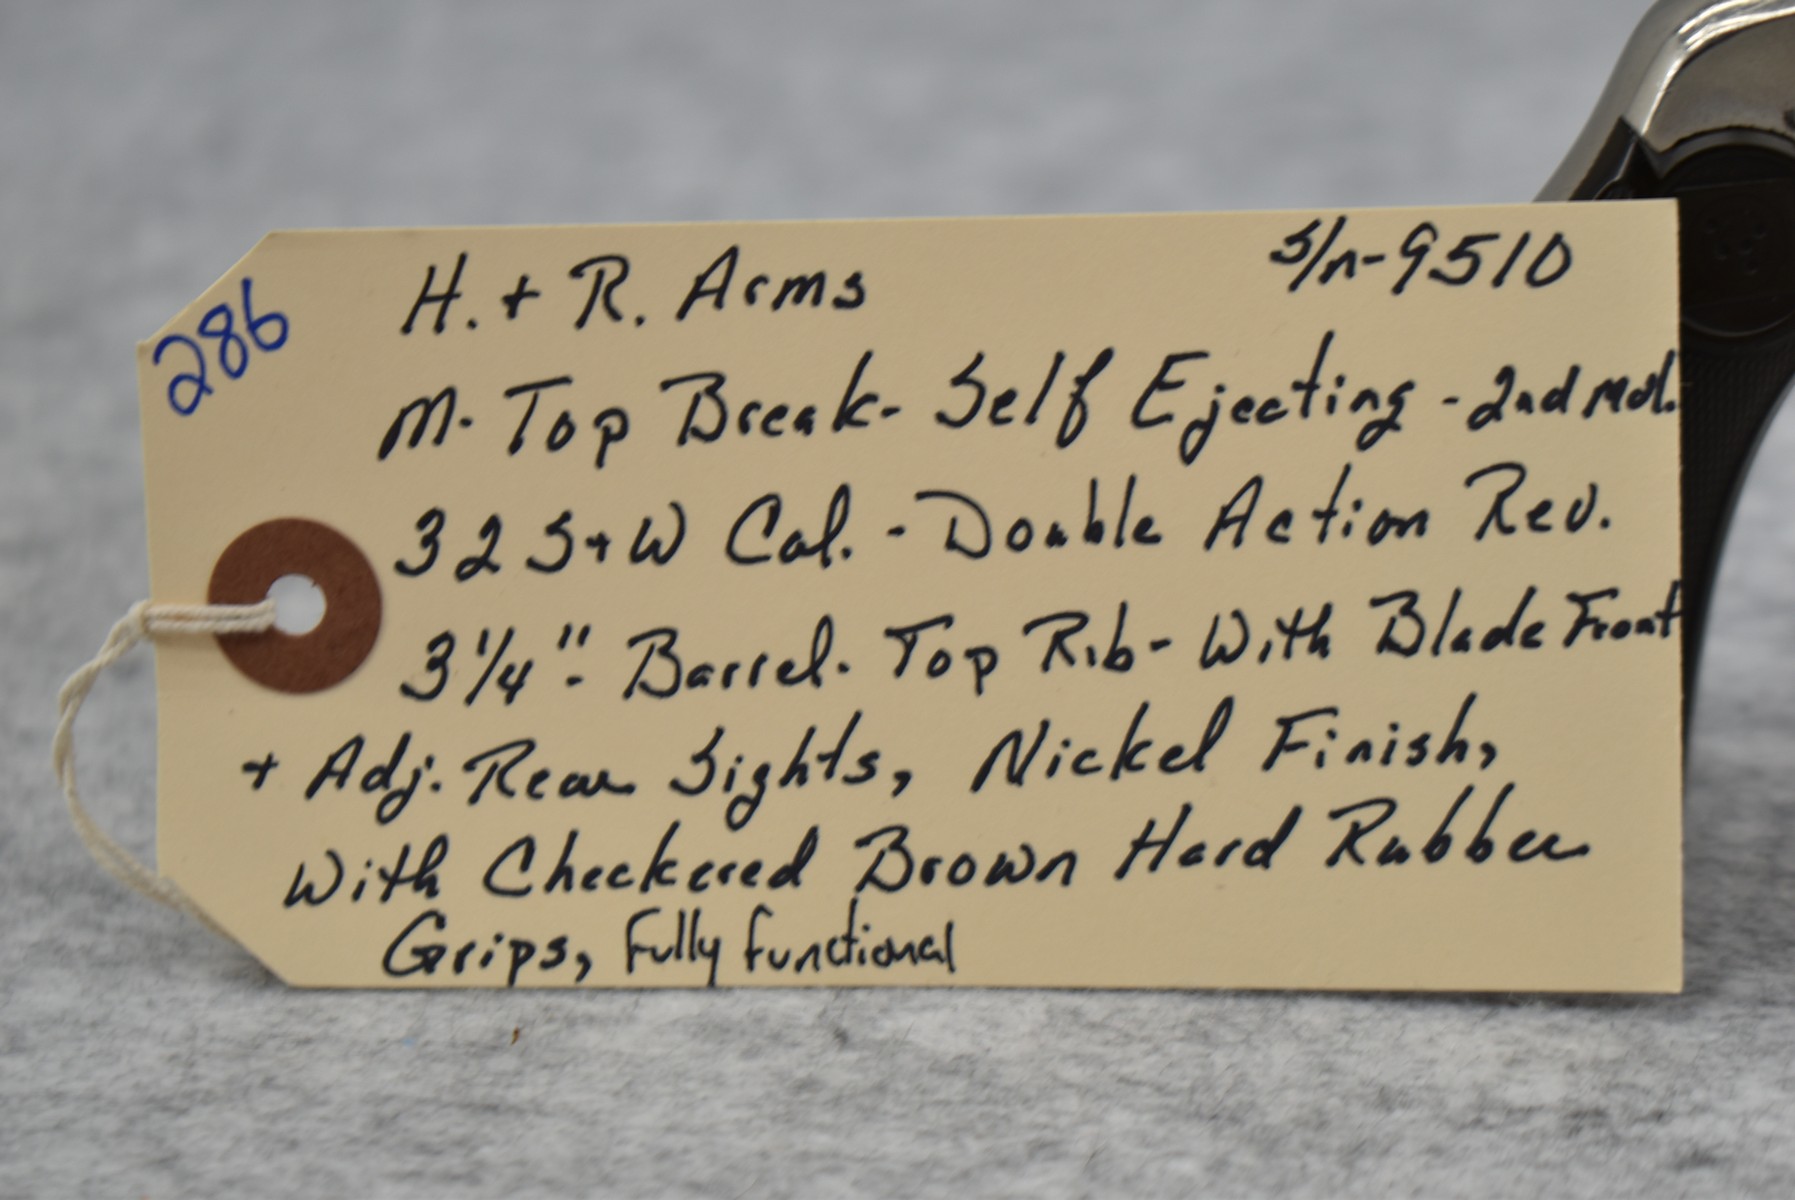 286
H. + R. Arms s/n-9510
M- Top Break- Self Ejecting - 2nd Mdl.
32 S+W Cal. - Double Action Rev.
3 1/4"- Barrel- Top Rib- With Blade Front
+ Adj. Rear Sights, Nickel Finish,
With Checkered Brown Hard Rubber
Grips, Fully Functional